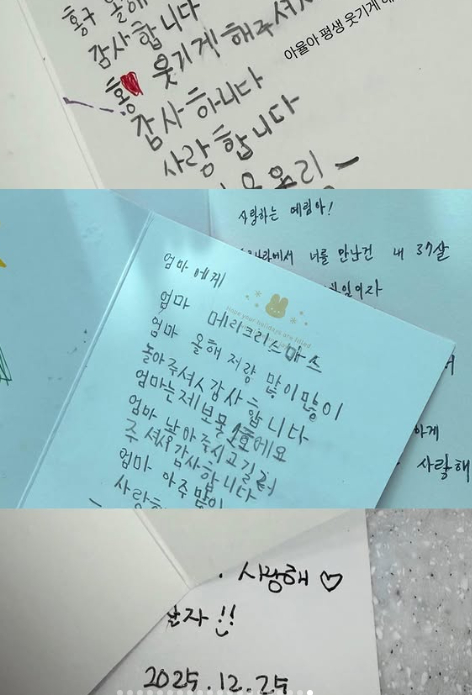 홍구 올해
감사합니다
홍 웃기게 해주셔서
아율아 평생 웃기게 해
감사하니다
사랑합니다
사랑하는 예림아!
너를 만난건 내 37살
엄마에게
엄마 메리크리스마스
엄마 올해 저랑 많이많이
놀아주셔서 감사합니다
엄마는 제보물 1호에요
엄마 낳아주시고 길러
주셔서 감사합니다
엄마 아주 많이
하게
사랑해
사랑해 ♡
2025.12.25